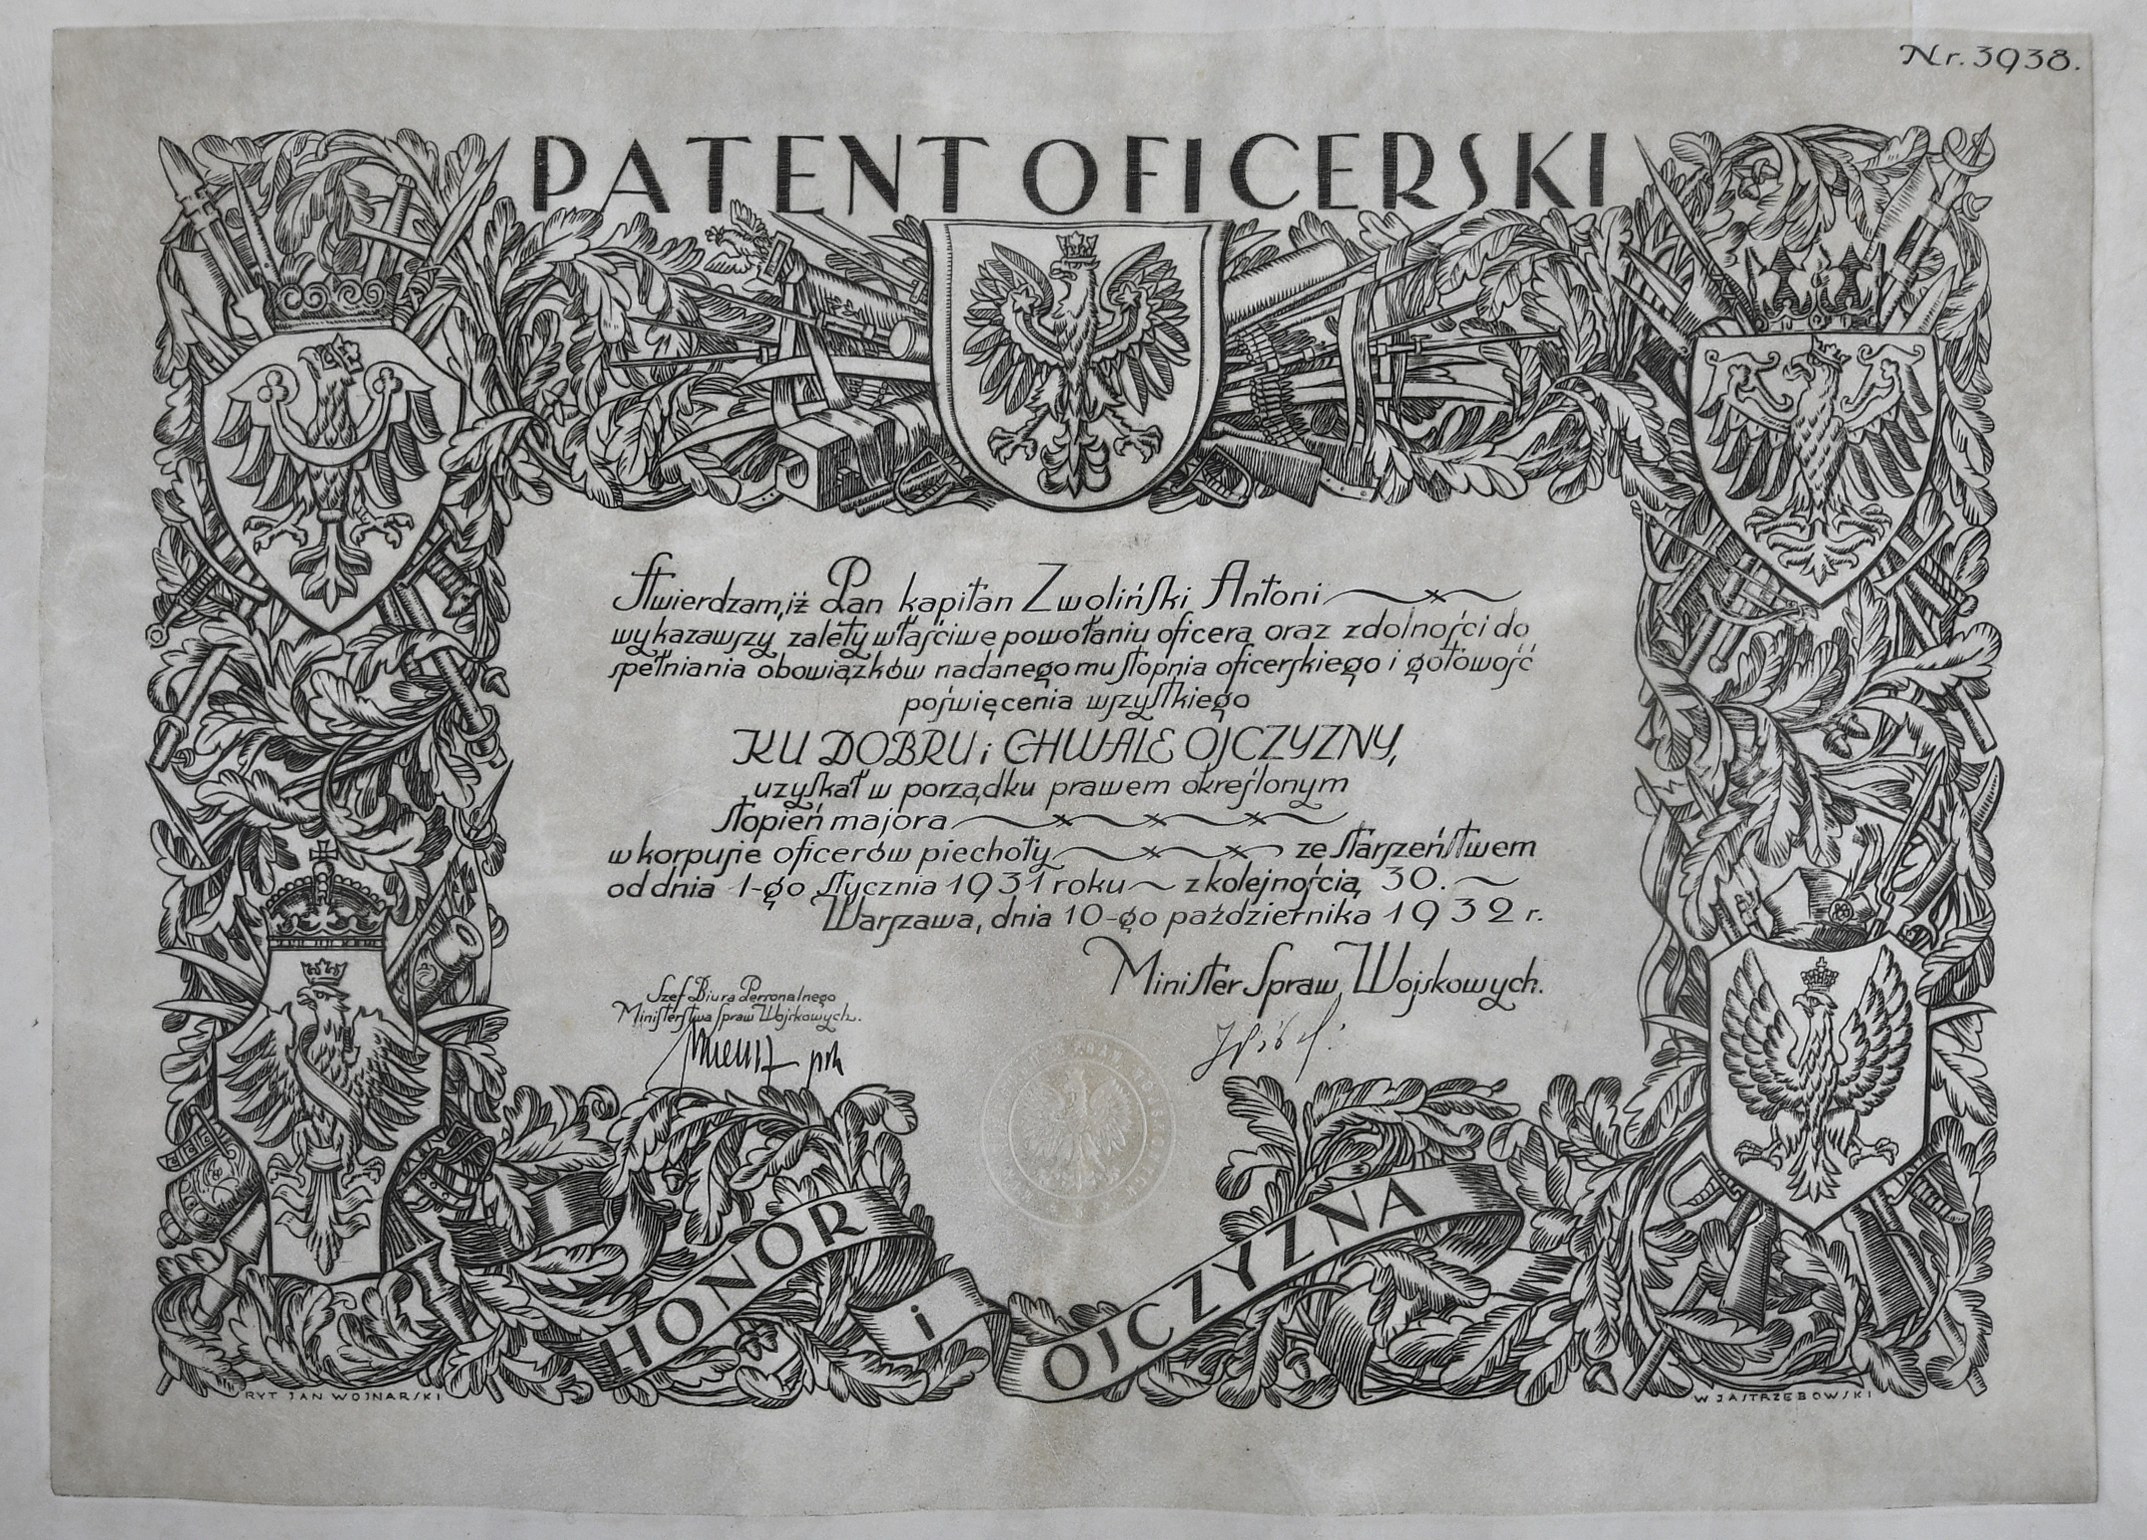 Nr. 3938.
PATENT OFICERSKI
Stwierdzam, iż Pan kapitan Zwoliński Antoni
wykazawszy zalety właściwe powołaniu oficera oraz zdolności do
spełniania obowiązków nadanego mu stopnia oficerskiego i gotowość
poświęcenia wszystkiego
KU DOBRU i CHWALE OJCZYZNY,
uzyskał w porządku prawem określonym
stopień majora
w korpusie oficerów piechoty ze starszeństwem
od dnia 1-go stycznia 1931 roku z kolejnością 30.
Warszawa, dnia 10-go października 1932 r.
Minister Spraw Wojskowych.
Szef Biura Personalnego
Ministerstwa Spraw Wojskowych.
HONOR i OJCZYZNA
RYT JAN WOJNARSKI
W JASTRZĘBOWSKI